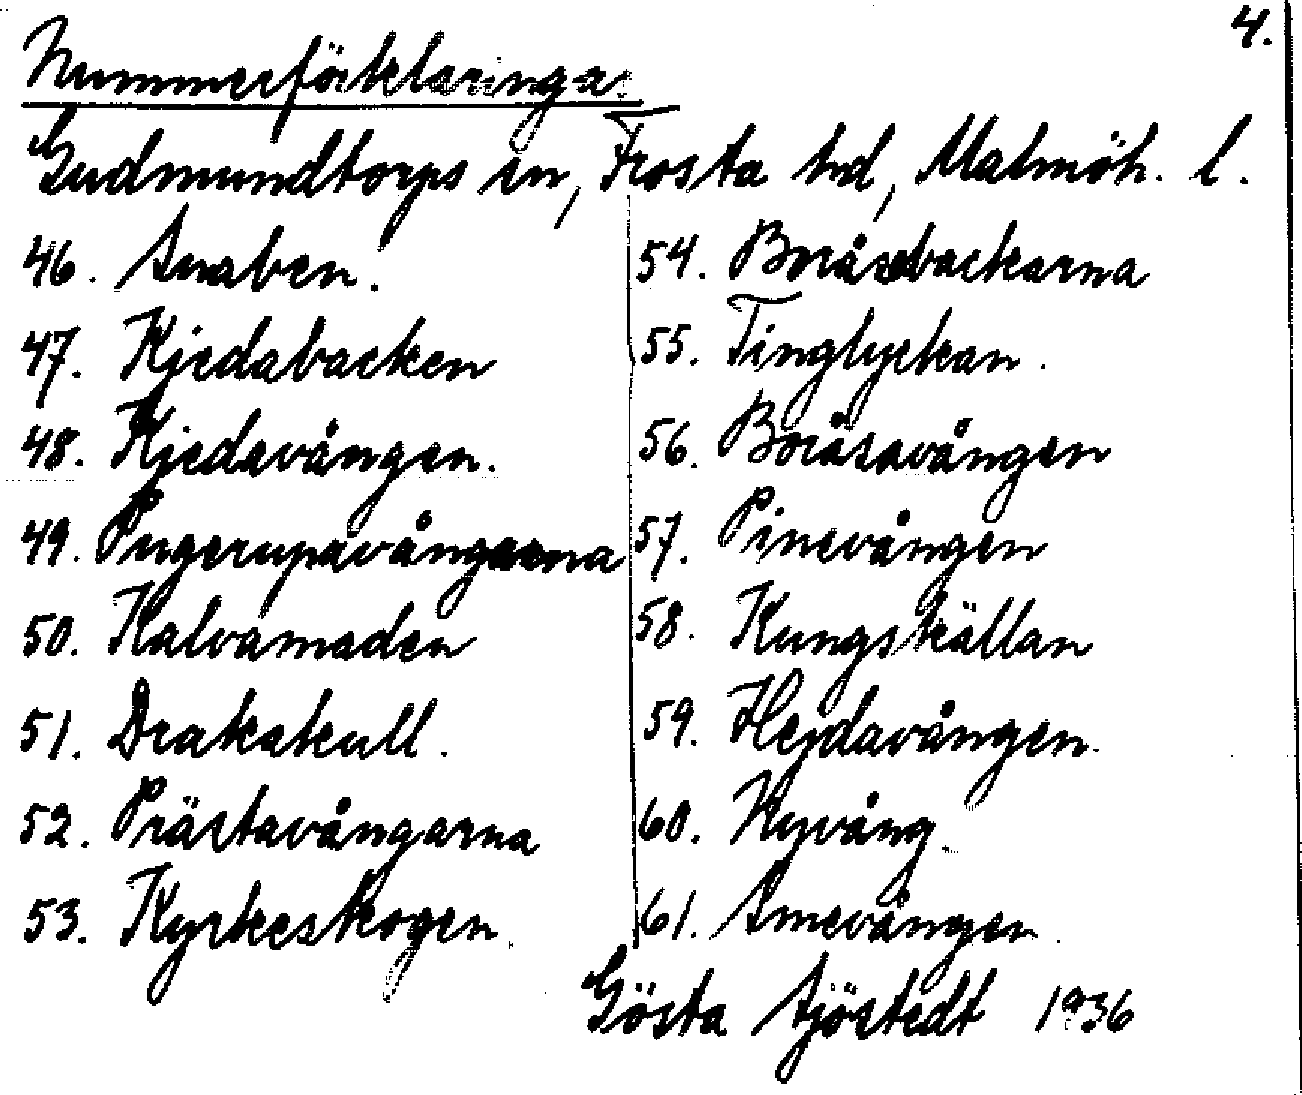 4.
Nummerförklaringar
Gudmundtorps sn, Frosta hd, Malmöh. l.
46. Snaben.
47. Kjedabacken
48. Kjedavången.
49. Pugerupavångarna
50. Kalvamaden
51. Drakakull.
52. Prästavångarna
53. Kyrkeskogen.
54. Boråsabackarna
55. Tinglyckan.
56. Boråsavången
57. Pinevången
58. Kungskällan
59. Hejdavången.
60. Kyvång.
61. Smevången.
Gösta Sjöstedt 1936